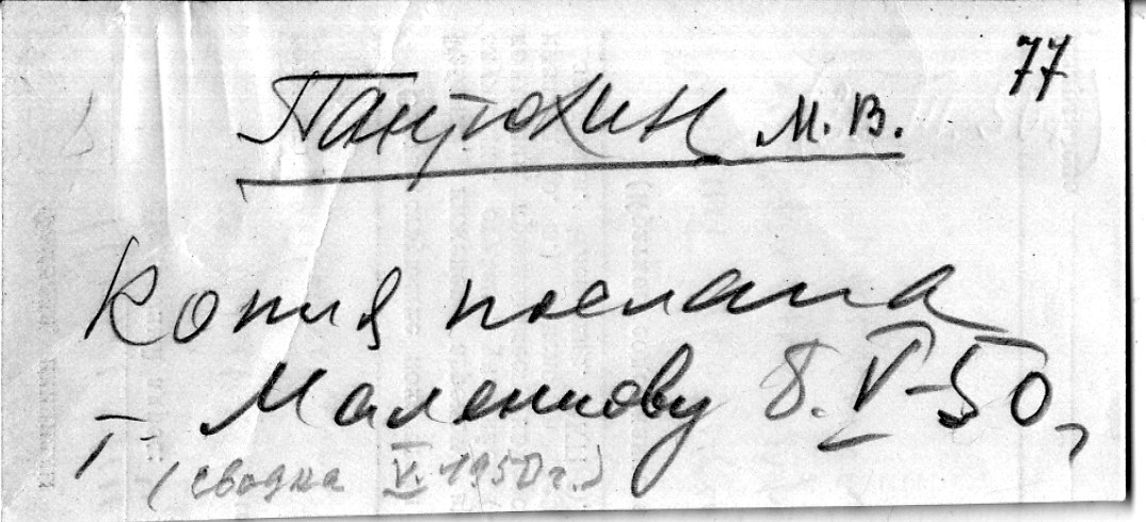 77
Пантюхин М.В.
Копия послана
т. Маленкову 8.V-50,
(сводка V. 1950 г.)